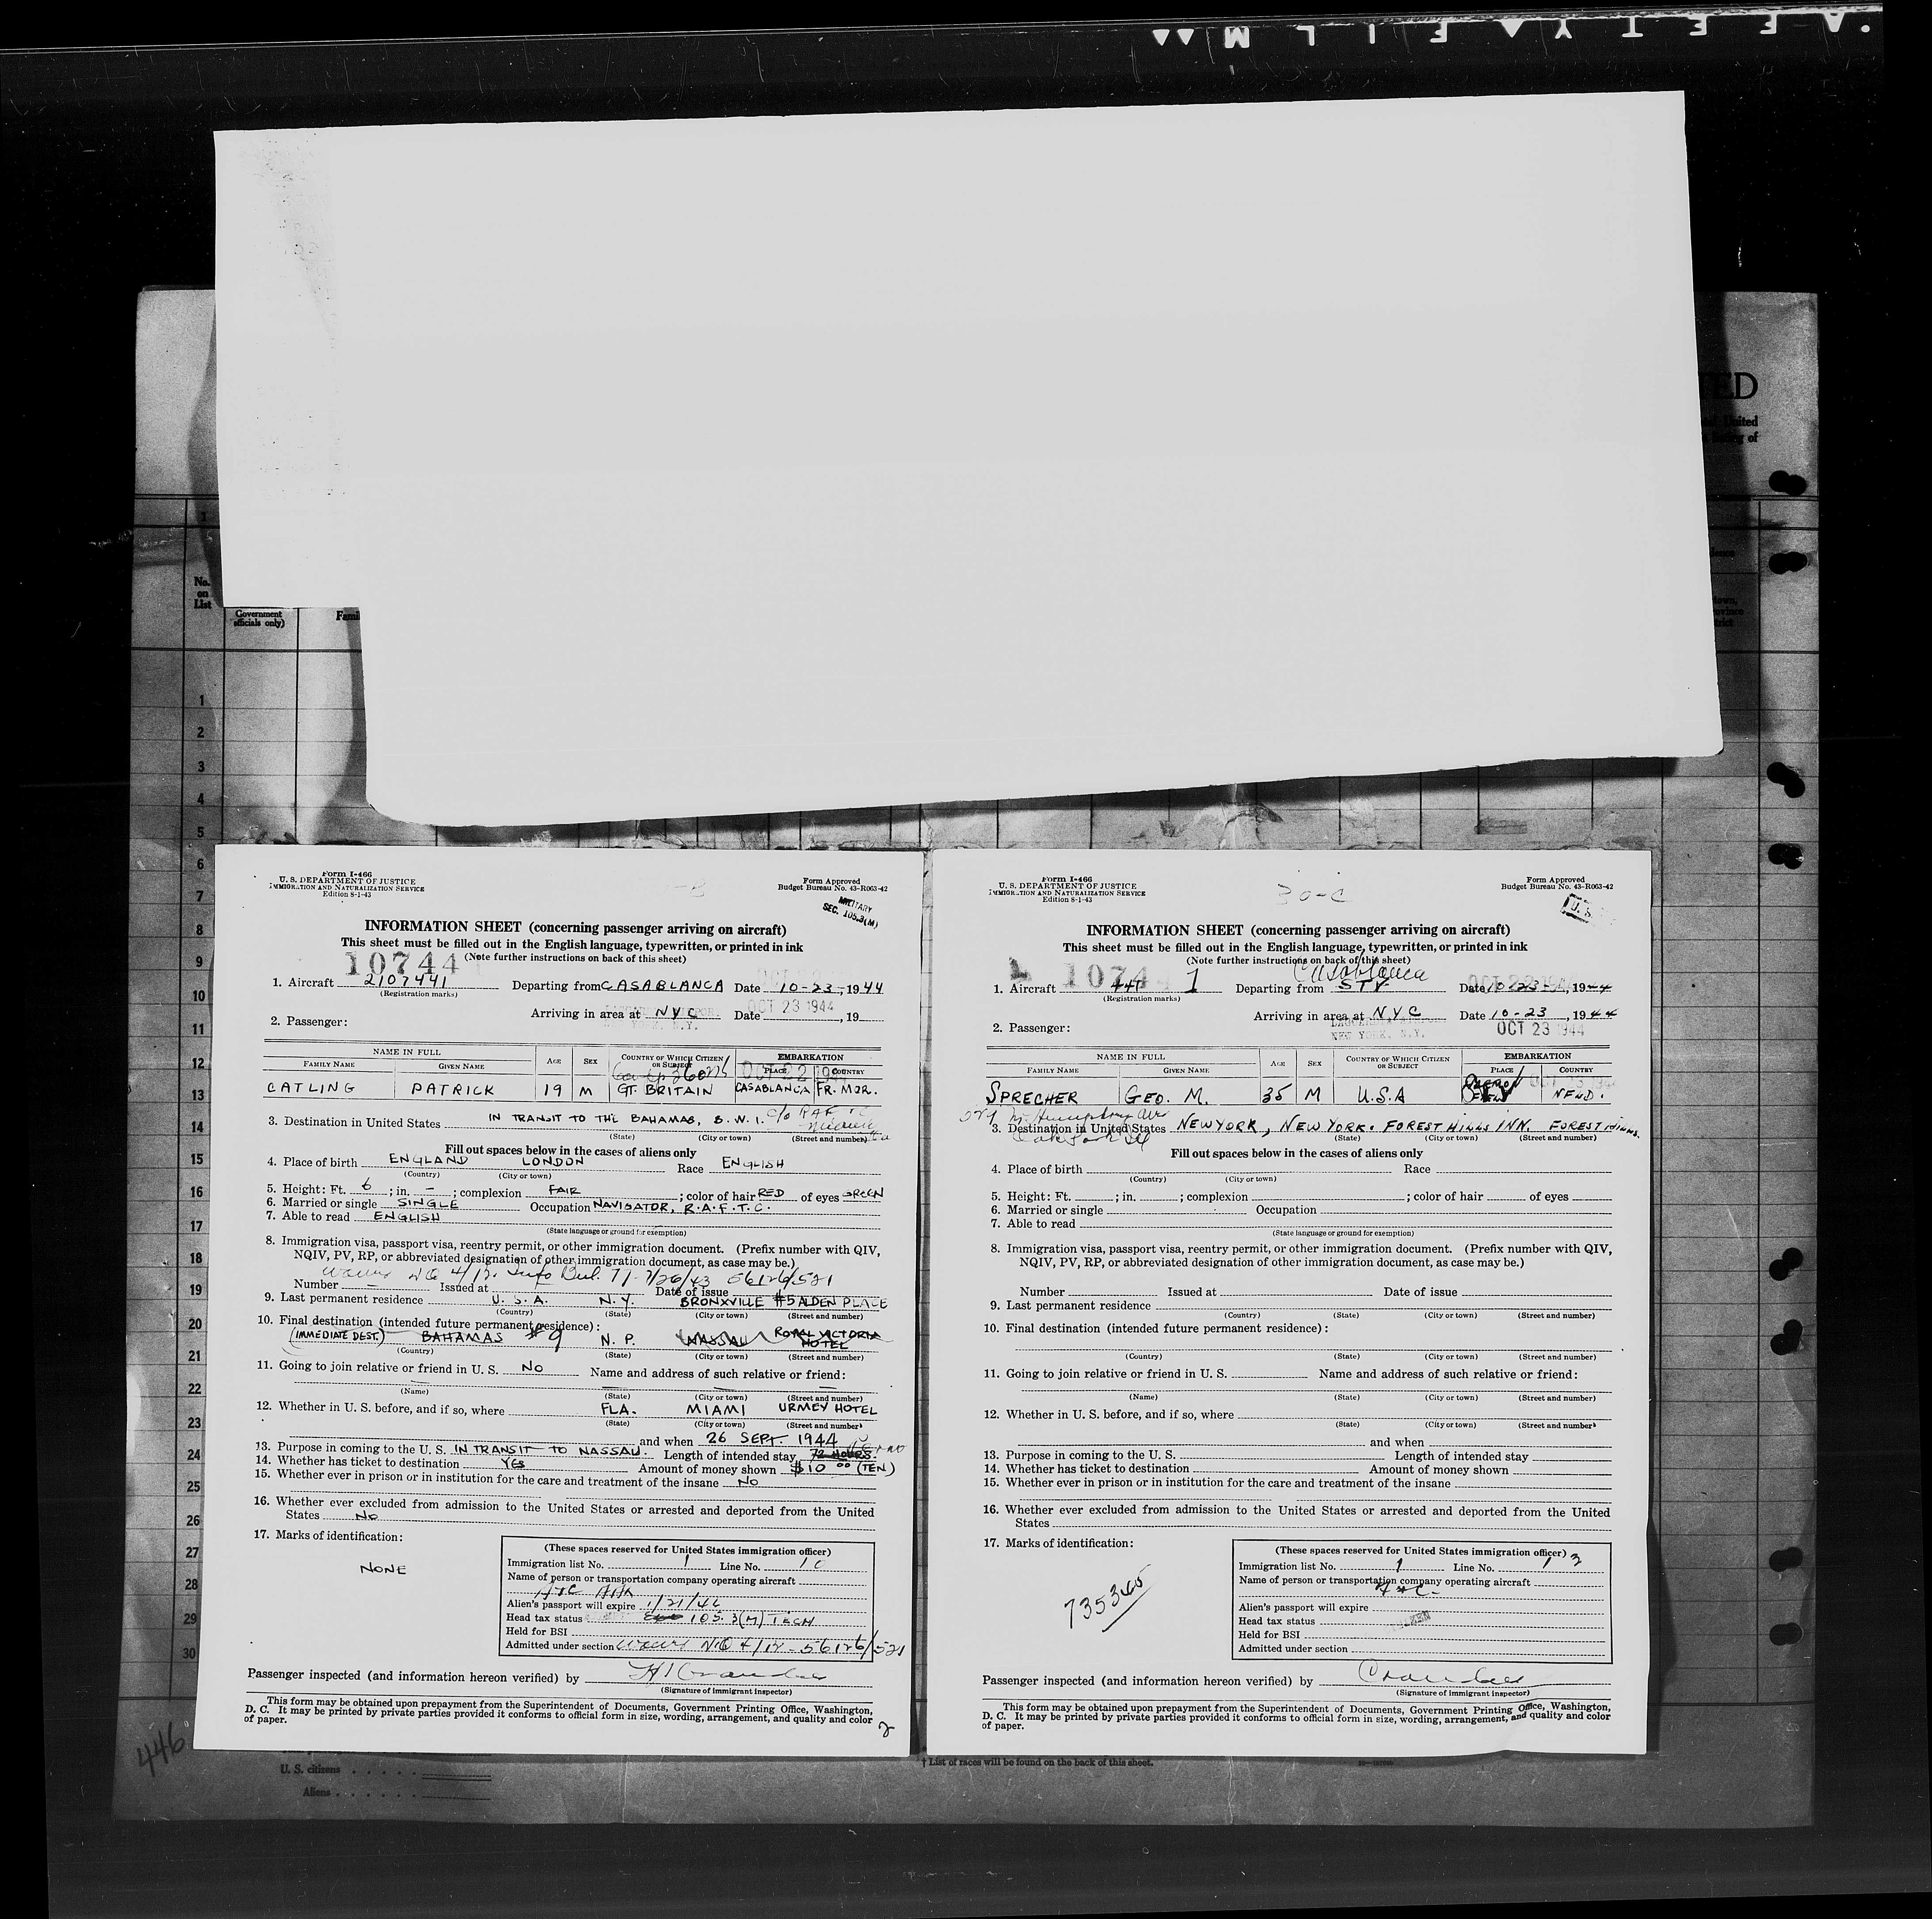 SAFETY FILM
ED
United
of
No.
on
List
Government
officials only)
Famil
1
2
3
4
5
6
7
8
9
10
11
12
13
14
15
16
17
18
19
20
21
22
23
24
25
26
27
28
29
30
446
Form I-466
U. S. DEPARTMENT OF JUSTICE
IMMIGRATION AND NATURALIZATION SERVICE
Edition 8-1-43
Form Approved
Budget Bureau No. 43-R063-42
MILITARY
SEC. 105.3(M)
INFORMATION SHEET (concerning passenger arriving on aircraft)
This sheet must be filled out in the English language, typewritten, or printed in ink
(Note further instructions on back of this sheet)
10744
1. Aircraft 2107441 Departing from CASABLANCA Date 10-23-, 1944
(Registration marks)
OCT 23 1944
Arriving in area at NYC Date , 19
2. Passenger:
NAME IN FULL AGE SEX COUNTRY OF WHICH CITIZEN OR SUBJECT EMBARKATION
FAMILY NAME GIVEN NAME PLACE COUNTRY
CATLING PATRICK 19 M GT. BRITAIN CASABLANCA FR. MOR.
3. Destination in United States IN TRANSIT TO THE BAHAMAS, B.W.I. c/o RAF TC
(State) (City or town) (Street and number)
Fill out spaces below in the cases of aliens only
4. Place of birth ENGLAND LONDON Race ENGLISH
(Country) (City or town)
5. Height: Ft. 6 ; in. - ; complexion FAIR ; color of hair RED of eyes GREEN
6. Married or single SINGLE Occupation NAVIGATOR, R.A.F.T.C.
7. Able to read ENGLISH
(State language or ground for exemption)
8. Immigration visa, passport visa, reentry permit, or other immigration document. (Prefix number with QIV,
NQIV, PV, RP, or abbreviated designation of other immigration document, as case may be.)
7/26/43 56126/521
Number Issued at Date of issue
9. Last permanent residence U.S.A. N.Y. BRONXVILLE #5 ALDEN PLACE
(Country) (State) (City or town) (Street and number)
10. Final destination (intended future permanent residence):
(IMMEDIATE DEST.) BAHAMAS #9 N.P. NASSAU ROYAL VICTORIA HOTEL
(Country) (State) (City or town) (Street and number)
11. Going to join relative or friend in U. S. NO Name and address of such relative or friend:
(Name) (State) (City or town) (Street and number)
12. Whether in U. S. before, and if so, where FLA. MIAMI URMEY HOTEL
(State) (City or town) (Street and number)
and when 26 SEPT. 1944
13. Purpose in coming to the U. S. IN TRANSIT TO NASSAU. Length of intended stay 72 HOURS.
14. Whether has ticket to destination YES Amount of money shown $10 00 (TEN)
15. Whether ever in prison or in institution for the care and treatment of the insane NO
16. Whether ever excluded from admission to the United States or arrested and deported from the United
States NO
17. Marks of identification:
NONE
(These spaces reserved for United States immigration officer)
Immigration list No. 1 Line No. 10
Name of person or transportation company operating aircraft
ATC
Alien's passport will expire 1/21/46
Head tax status 105.3(M) TECH
Held for BSI
Admitted under section 4/12 - 56126/521
Passenger inspected (and information hereon verified) by
(Signature of immigrant inspector)
This form may be obtained upon prepayment from the Superintendent of Documents, Government Printing Office, Washington,
D. C. It may be printed by private parties provided it conforms to official form in size, wording, arrangement, and quality and color
of paper.
2
Form I-466
U. S. DEPARTMENT OF JUSTICE
IMMIGRATION AND NATURALIZATION SERVICE
Edition 8-1-43
30-C
Form Approved
Budget Bureau No. 43-R063-42
U.S.
INFORMATION SHEET (concerning passenger arriving on aircraft)
This sheet must be filled out in the English language, typewritten, or printed in ink
(Note further instructions on back of this sheet)
10744 1 Casablanca
1. Aircraft 441 Departing from STV Date 10-23-, 1944
(Registration marks)
Arriving in area at NYC Date 10-23, 1944
NEW YORK, N.Y. OCT 23 1944
2. Passenger:
NAME IN FULL AGE SEX COUNTRY OF WHICH CITIZEN OR SUBJECT EMBARKATION
FAMILY NAME GIVEN NAME PLACE COUNTRY
SPRECHER GEO. M. 35 M U.S.A NFND.
N. Humphrey Ave
3. Destination in United States NEW YORK, NEW YORK. FOREST HILLS INN. FOREST HILLS.
Oak Park Ill
(State) (City or town) (Street and number)
Fill out spaces below in the cases of aliens only
4. Place of birth Race
(Country) (City or town)
5. Height: Ft. ; in. ; complexion ; color of hair of eyes
6. Married or single Occupation
7. Able to read
(State language or ground for exemption)
8. Immigration visa, passport visa, reentry permit, or other immigration document. (Prefix number with QIV,
NQIV, PV, RP, or abbreviated designation of other immigration document, as case may be.)
Number Issued at Date of issue
9. Last permanent residence
(Country) (State) (City or town) (Street and number)
10. Final destination (intended future permanent residence):
(Country) (State) (City or town) (Street and number)
11. Going to join relative or friend in U. S. Name and address of such relative or friend:
(Name) (State) (City or town) (Street and number)
12. Whether in U. S. before, and if so, where
(State) (City or town) (Street and number)
and when
13. Purpose in coming to the U. S. Length of intended stay
14. Whether has ticket to destination Amount of money shown
15. Whether ever in prison or in institution for the care and treatment of the insane
16. Whether ever excluded from admission to the United States or arrested and deported from the United
States
17. Marks of identification:
735365
(These spaces reserved for United States immigration officer)
Immigration list No. 1 Line No. 13
Name of person or transportation company operating aircraft
Alien's passport will expire
Head tax status
Held for BSI
Admitted under section
Passenger inspected (and information hereon verified) by
(Signature of immigrant inspector)
This form may be obtained upon prepayment from the Superintendent of Documents, Government Printing Office, Washington,
D. C. It may be printed by private parties provided it conforms to official form in size, wording, arrangement, and quality and color
of paper.
U. S. citizens
Aliens
† List of races will be found on the back of this sheet.